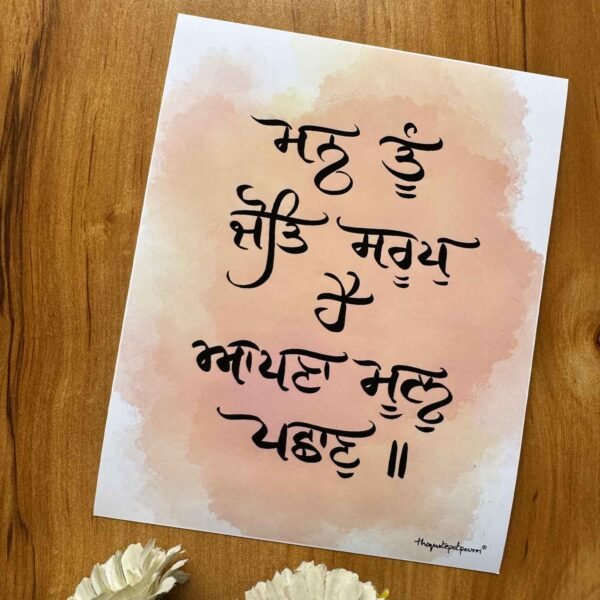 ਮਨੁ ਤੂੰ
ਜੋਤਿ ਸਰੂਪੁ
ਹੈ
ਆਪਣਾ ਮੂਲੁ
ਪਛਾਣੁ ॥
thequotepotpourri®